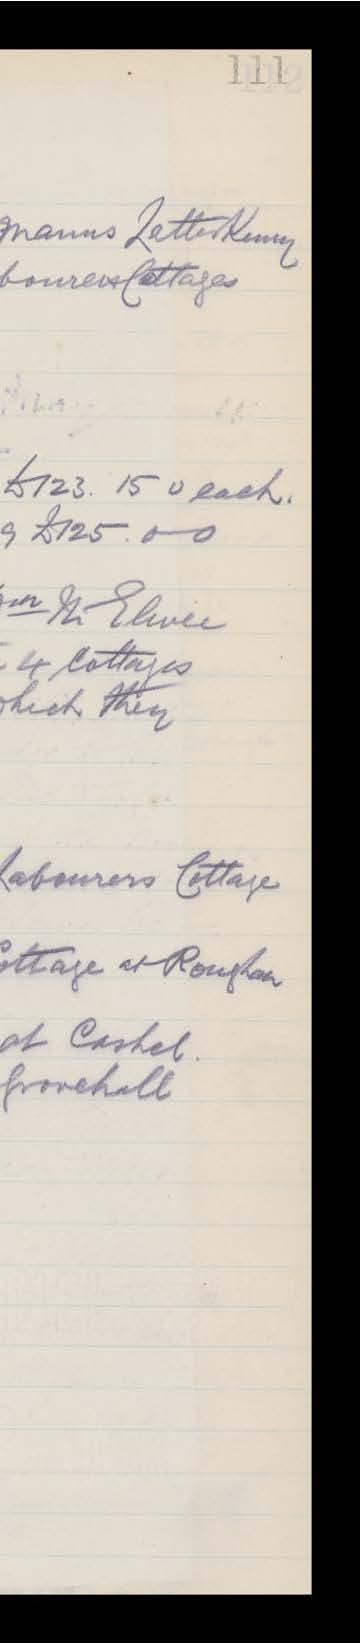 111
manus LetterKenny
bourers Cottages
£123. 15 0 each.
9 £125. 0 0
Mc Elwee
4 Cottages
which they
Labourers Cottage
Cottage at Roughan
at Cashel.
Grovehall